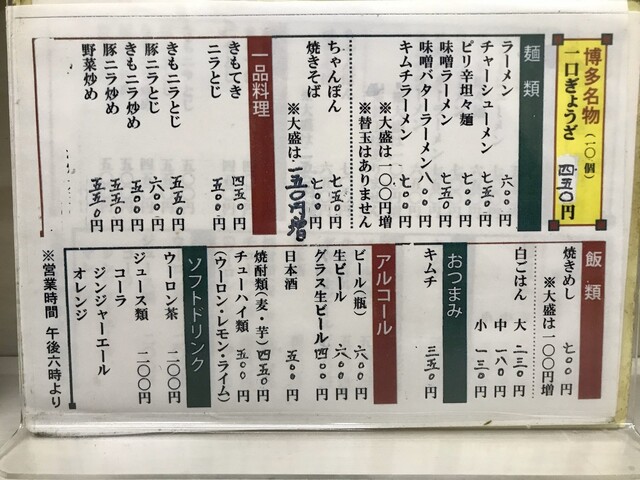 博多名物(一〇個)
一口ぎょうざ 四五〇円
麺類
ラーメン 六〇〇円
チャーシューメン 七五〇円
ピリ辛坦々麺 七〇〇円
味噌ラーメン 七五〇円
味噌バターラーメン 八〇〇円
キムチラーメン 七〇〇円
※大盛は一〇〇円増
※替玉はありません
ちゃんぽん 七五〇円
焼きそば 七〇〇円
※大盛は一五〇円増
一品料理
きもてき 四五〇円
ニラとじ 五〇〇円
きもニラとじ 五五〇円
豚ニラとじ 六〇〇円
きもニラ炒め 五五〇円
豚ニラ炒め 五五〇円
野菜炒め 五五〇円
飯類
焼きめし 七〇〇円
※大盛は一〇〇円増
白ごはん 大 二三〇円
中 一八〇円
小 一三〇円
おつまみ
キムチ 三五〇円
アルコール
ビール(瓶) 六〇〇円
生ビール 六〇〇円
グラス生ビール 四〇〇円
日本酒 五〇〇円
焼酎類(麦・芋) 四五〇円
チューハイ類 五〇〇円
(ウーロン・レモン・ライム)
ソフトドリンク
ウーロン茶 二〇〇円
ジュース類 二〇〇円
コーラ
ジンジャーエール
オレンジ
※営業時間 午後六時より